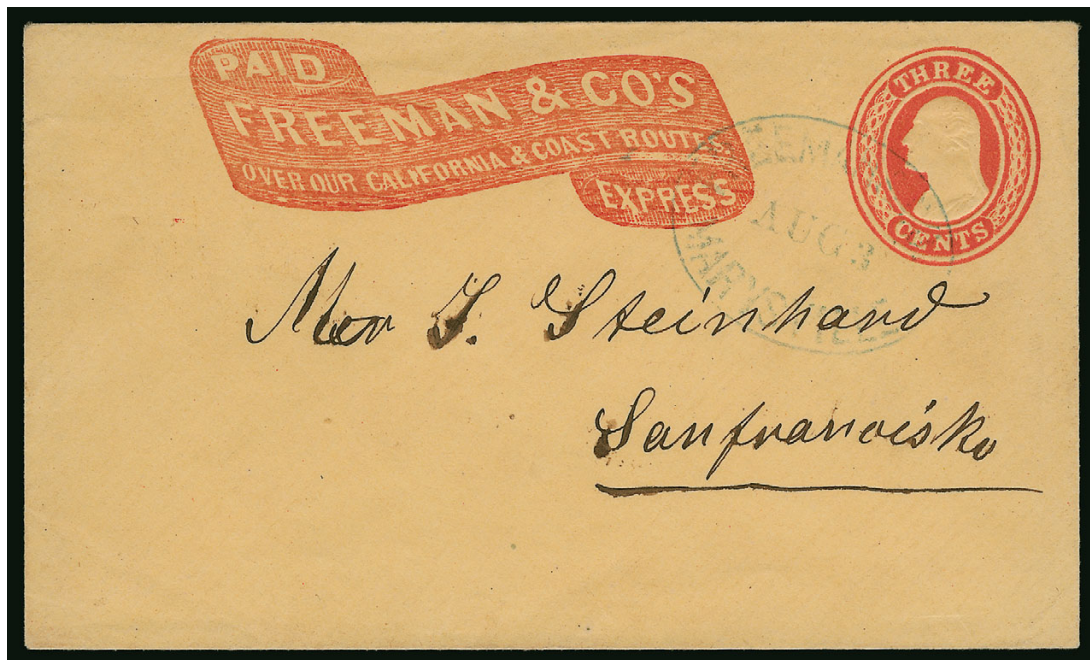 PAID
FREEMAN & CO'S
OVER OUR CALIFORNIA & COAST ROUTES.
EXPRESS
THREE
CENTS
AUG 3
MARYSVILLE
J. Steinhard
Sanfrancisko